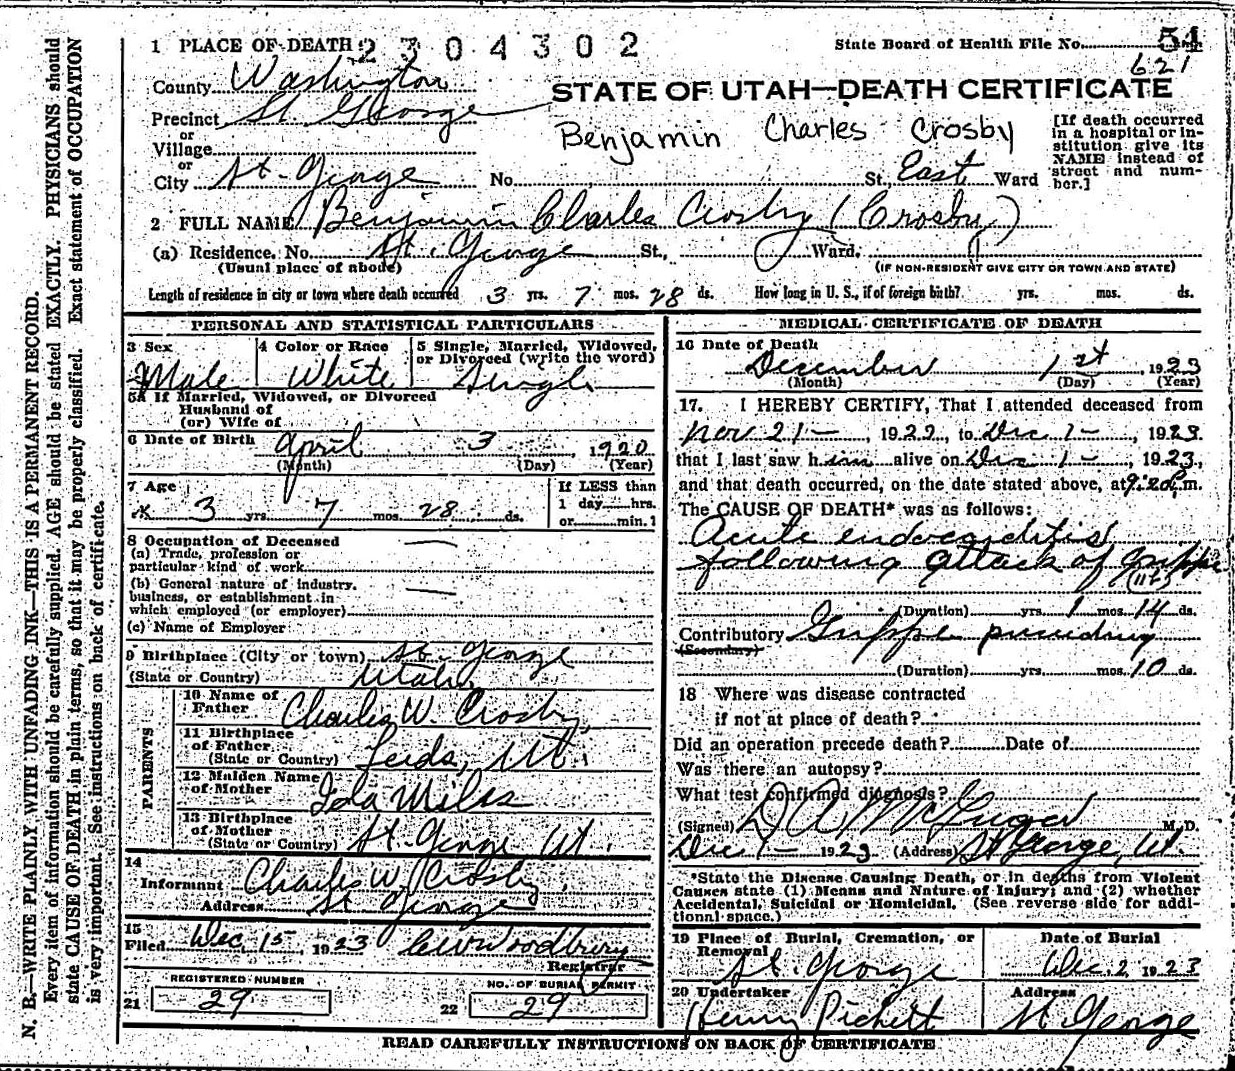 N. B.—WRITE PLAINLY WITH UNFADING INK—THIS IS A PERMANENT RECORD.
Every item of information should be carefully supplied. AGE should be stated EXACTLY. PHYSICIANS should
state CAUSE OF DEATH in plain terms, so that it may be properly classified. Exact statement of OCCUPATION
is very important. See instructions on back of certificate.
1 PLACE OF DEATH 2304302 State Board of Health File No. 54
621
County Washington
STATE OF UTAH—DEATH CERTIFICATE
Precinct St. George
or
Village
or
Benjamin Charles Crosby
[If death occurred
in a hospital or in-
stitution give its
NAME instead of
street and num-
ber.]
City St. George No. St. East Ward
2 FULL NAME Benjamin Charles Crosby (Crosby)
(a) Residence. No. St. George St., Ward.
(Usual place of abode) (IF NON-RESIDENT GIVE CITY OR TOWN AND STATE)
Length of residence in city or town where death occurred 3 yrs. 7 mos. 28 ds. How long in U. S., if of foreign birth? yrs. mos. ds.
PERSONAL AND STATISTICAL PARTICULARS
3 Sex 4 Color or Race 5 Single, Married, Widowed,
or Divorced (write the word)
Male White Single
5A If Married, Widowed, or Divorced
Husband of
(or) Wife of
6 Date of Birth April 3, 1920
(Month) (Day) (Year)
7 Age If LESS than
3 yrs. 7 mos. 28 ds. 1 day hrs.
or min.?
8 Occupation of Deceased
(a) Trade, profession or
particular kind of work
(b) General nature of industry,
business, or establishment in
which employed (or employer)
(c) Name of Employer
9 Birthplace (City or town) St. George
(State or Country) Utah
PARENTS
10 Name of
Father Charles W. Crosby,
11 Birthplace
of Father
(State or Country) Leeds, Ut.
12 Maiden Name
of Mother Ida Miles
13 Birthplace
of Mother
(State or Country) St. George Ut.
14
Informant Charles W. Crosby,
Address St George
15
Filed Dec 15 1923 Woodbury
Registrar
REGISTERED NUMBER NO. OF BURIAL PERMIT
21 29 22 29
MEDICAL CERTIFICATE OF DEATH
16 Date of Death
December 1st, 1923
(Month) (Day) (Year)
17. I HEREBY CERTIFY, That I attended deceased from
Nov 21—, 1922, to Dec 1—, 1923.
that I last saw him alive on Dec 1—, 1923,
and that death occurred, on the date stated above, at 9:20 p.m.
The CAUSE OF DEATH* was as follows:
Acute endocarditis
following attack of Grippe
(Duration) yrs. 1 mos. 14 ds.
Contributory Grippe preceding
(Secondary)
(Duration) yrs. mos. 10 ds.
18 Where was disease contracted
if not at place of death?
Did an operation precede death? Date of
Was there an autopsy?
What test confirmed diagnosis?
(Signed) D A McGregor M. D.
Dec 1— 1923 (Address) St George, Ut.
*State the Disease Causing Death, or in deaths from Violent
Causes state (1) Means and Nature of Injury; and (2) whether
Accidental, Suicidal or Homicidal. (See reverse side for addi-
tional space.)
19 Place of Burial, Cremation, or
Removal Date of Burial
St. George Dec. 2 1923
20 Undertaker Address
Henry Pickett St George
READ CAREFULLY INSTRUCTIONS ON BACK OF CERTIFICATE